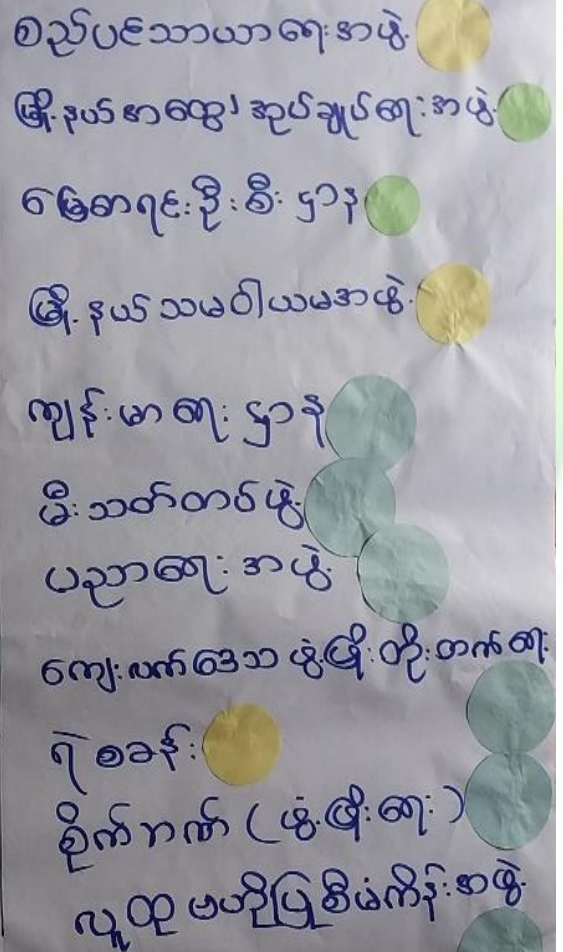 စည်ပင်သာယာရေးအဖွဲ့
မြို့နယ်အထွေ/အုပ်ချုပ်ရေးအဖွဲ့
မြေစာရင်းဦးစီးဌာန
မြို့နယ်သမဝါယမအဖွဲ့
ကျန်းမာရေးဌာန
မီးသတ်တပ်ဖွဲ့
ပညာရေးအဖွဲ့
ကျေးလက်ဒေသဖွံ့ဖြိုးတိုးတက်ရေး
ရဲစခန်း
စိုက်ဘဏ် (ဖွံ့ဖြိုးရေး)
လူထုဗဟိုပြုစီမံကိန်းအဖွဲ့